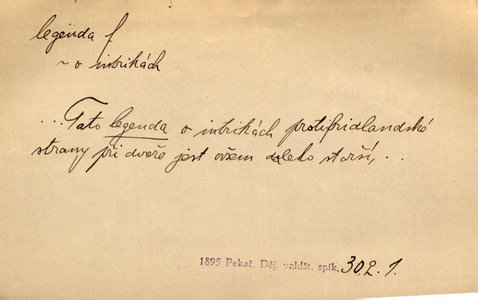 legenda f
~ o intrikách
...Tato legenda o intrikách protifridlandské
strany při dvoře jest ovšem daleko starší,..
1895 Pekař. Děj. valdšt. spik. 302.1.